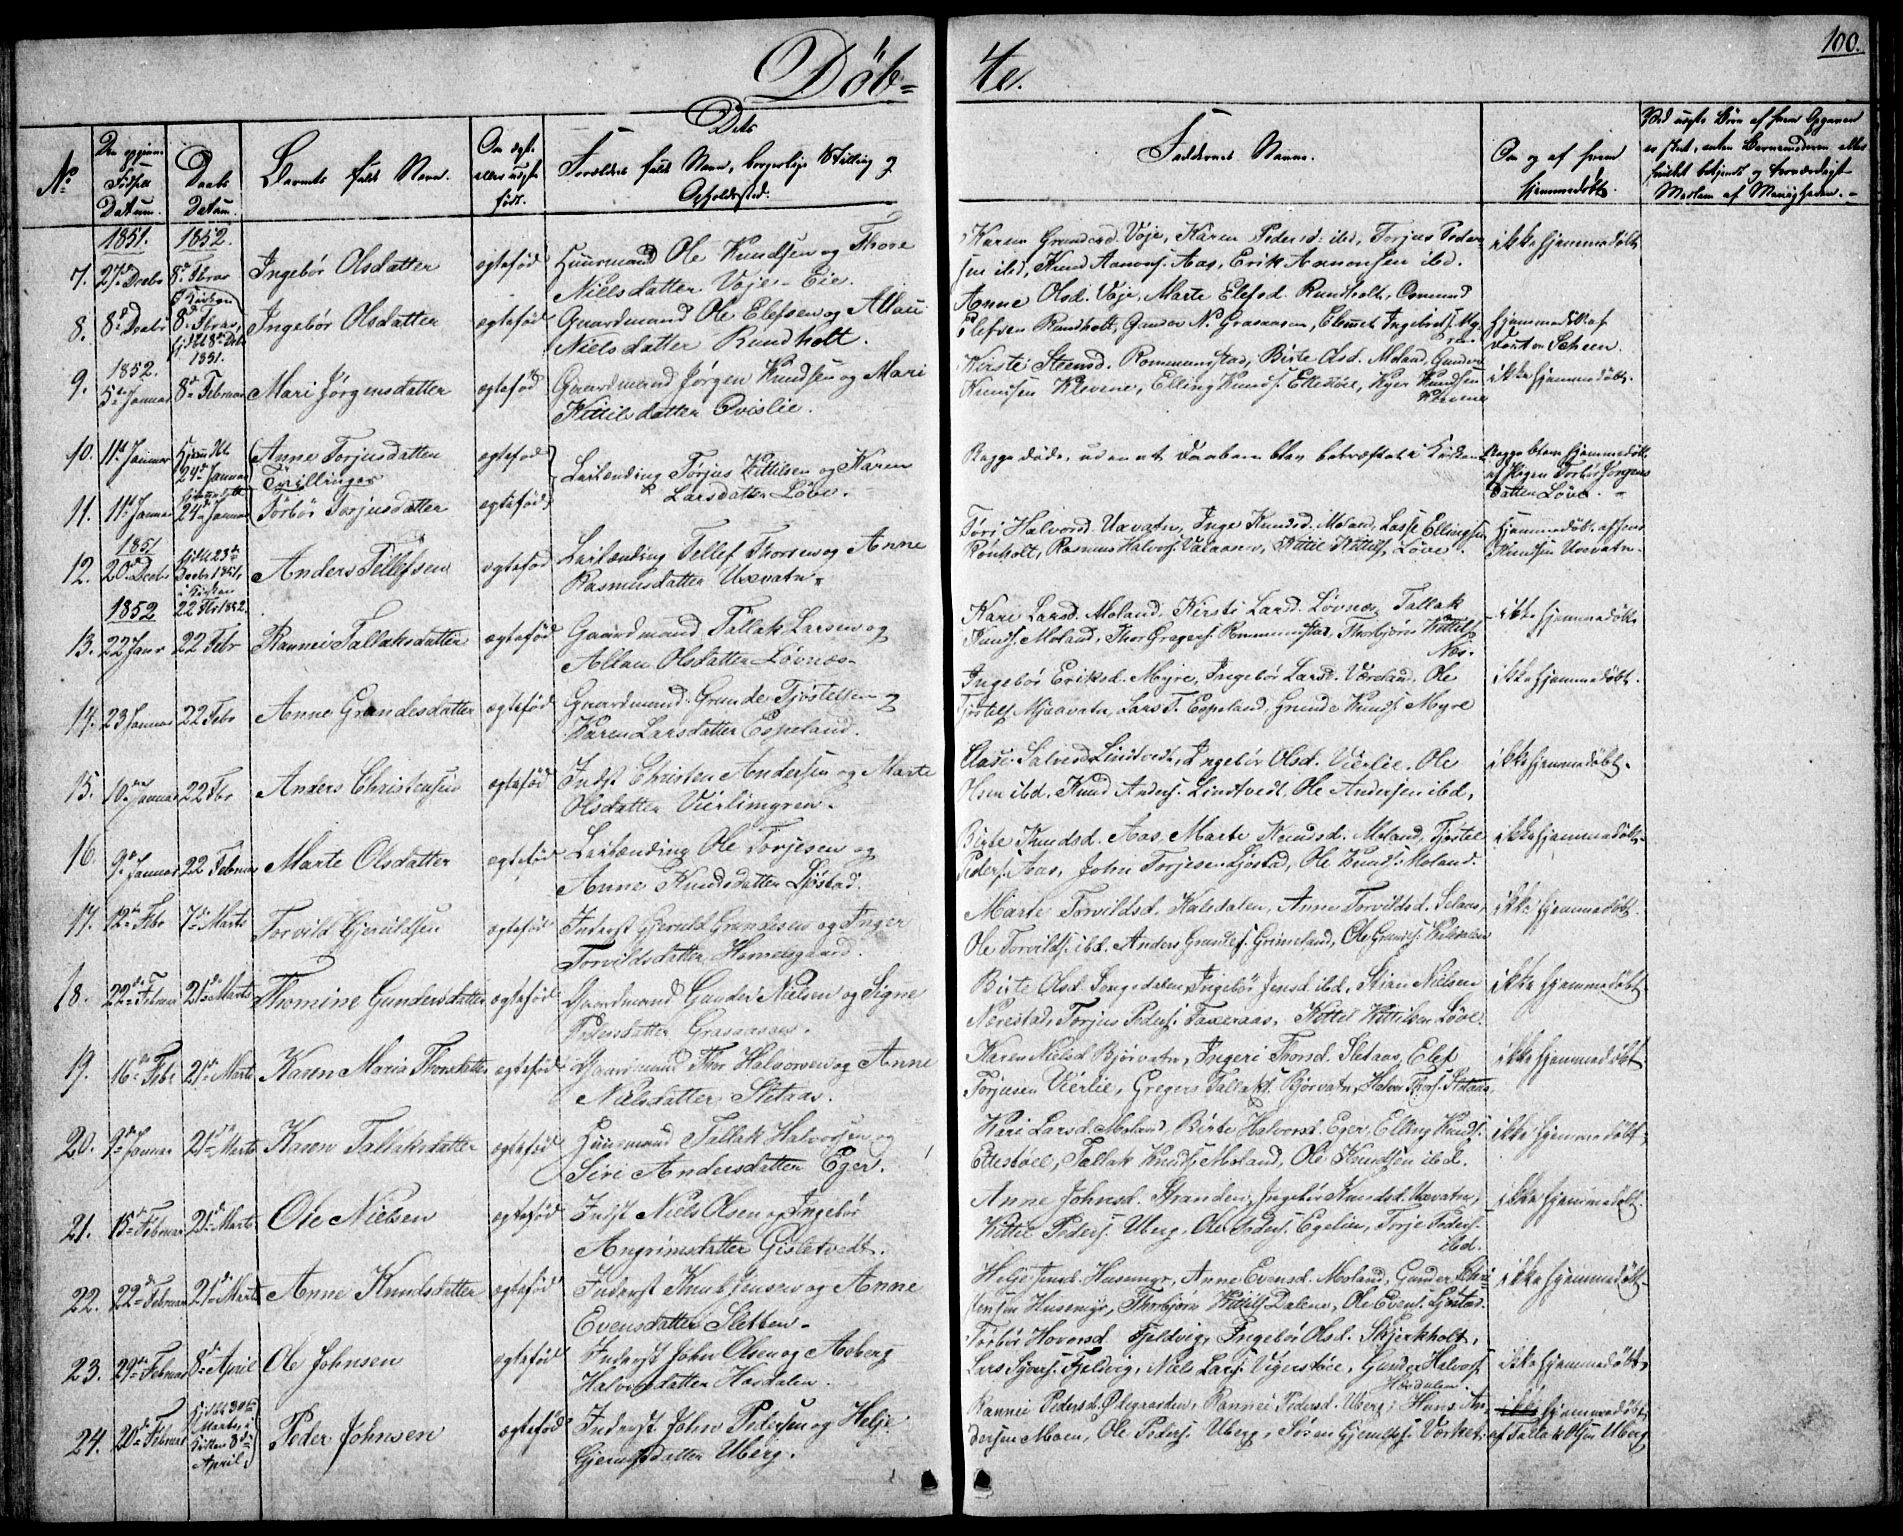 Døb=
te.
100.
No
Den opgivne Fødsels Datum.
Daabs Datum.
Barnets fulde Navn.
Om ægte eller uægte født.
Dets
Forældres fulde Navn, borgerlige Stilling og
Opholdssted.
Faddernes Navne.
Om og af hvem
hjemmedøbt.
1851. 1852.
7. 27de Decbr 8de Febr Ingebør Olsdatter ægtefød Huusmand Ole Knudsen og Thore
Nielsdatter Voje-Eie.
Karen Grundesd. Voje, Karen Pedersd: ibid, Torjus Peder-
sen ibid, Knud Aanons. Aas, Erik Aanonsen ibd.
ikke hjemmedøbt
8. 8de Decbr i Kirken 8de Febr, hjdbt 8de Decbr 1851. Ingebør Olsdatter ægtefød Gaardmand Ole Elefsen og Allau
Nielsdatter Rundholt.
Anne Olsd. Voje, Marte Elefsd. Rundholt, Osmund
Elefsen Rundholt, Gunder N. Grasaasen, Clemet Ingebrets. My-
ren
hjemmedøbt af
1852.
9. 5te Januar 8de Februar Mari Jørgensdatter ægtefød Gaardmand Jørgen Knudsen og Mari
Kittilsdatter Qvislie.
Kirsti Steensd. Rommunstad, Birte Olsd. Moland, Gunder
Knudsen Klevene, Elling Knuds. Ettestøe, Kyer Knudsen
Klevene
ikke hjemmedøbt.
10. 11te Januar Hjemdbt 24de Januar Anne Torjusdatter ægtefød
Tvillinger
Leilænding Torjus Kittilsen og Karen
Larsdatter Løve.
Begge døde, uden at Daaben blev bekræftet i Kirken
Begge bleve hjemmedøbt
af Pigen Torbør Jørgens
datter Løve.
11. 11te Januar 24de Januar Torbør Torjusdatter ægtefød
1851
12. 20de Decbr hjdbt 23de Decbr 1851, i Kirken Anders Tellefsen ægtefød Leilænding Tellef Thorsen og Anne
Rasmusdatter Uxvatn.
Tøri Halvorsd. Uxvatn, Inge Knudsd. Moland, Lasse Ellingsen
Rønholt, Rasmus Halvors. Valaasen, Kittil Kittils. Løve.
hjemmedøbt af Jens
Knudsen Uxvatn.
1852 22 Febr 1852.
13. 22 Janr 22 Febr Rannei Tallaksdatter ægtefød Gaardmand Tallak Larsen og
Allau Olsdatter Løvnæs.
Kari Larsd. Moland, Kirsti Larsd. Løvnæs, Tallak
Knuds. Moland, Thor Gregers. Rommunstad, Thorbjørn Kittils.
Næs.
ikke hjemmedøbt
14. 23 Januar 22 Febr Anne Grundesdatter ægtefød Gaardmand Grunde Tjøstelsen og
Karen Larsdatter Espeland.
Ingebør Eriksd. Myre, Ingebør Larsd. Værland, Ole
Tjøstels. Mjaavatn, Lars T. Espeland, Grunde Knuds. Myre
ikke hjemmedøbt.
15. 10de Januar 22 Fbr Anders Christensen ægtefød Indst Christen Andersen og Marte
Olsdatter Vierlimyren.
Aase Salvesd Lindtvedt, Ingebør Olsd. Vierlie, Ole
Olsen ibd. Knud Anders. Lindtvedt, Ole Andersen ibid,
ikke hjemmedøbt.
16. 9de Januar 22 Februar Marte Olsdatter ægtefød Leilænding Ole Torjesen og
Anne Knudsdatter Ljøstad.
Birte Knudsd. Aas, Marte Knudsd. Moland, Tjøstel
Peders. Aas, John Torjesen Ljøstad, Ole Knuds. Moland.
ikke hjemmedøbt.
17. 12te Febr 7de Marts Torvild Gjeruldsen ægtefød Inderst Gjeruld Grundesen og Inger
Torvildsdatter Hommelsgaard.
Marte Torvildsd. Kalsdalen, Anne Torvildsd. Selaas,
Ole Torvilds. ibd. Anders Grundes. Grimeland, Ole Grundes.
ikke hjemmedøbt.
18. 22de Februar 21de Marts Thomine Gundersdatter ægtefød Gaardmand Gunder Nielsen og Signe
Pedersdatter Grasaasen.
Birte Olsd. Songedalen, Ingebør Jensd. ibd, Stian Nielsen
Nerestad, Torjus Peders. Faxeraas, Kittel Kittilsen Løve.
ikke hjemmedøbt
19. 16de Febr 21de Marts Karen Maria Thorsdatter ægtefød Gaardmand Thor Halvorsen og Anne
Nielsdatter Sletaas.
Karen Nielsd Bjørvatn, Ingeri Thorsd. Sletaas, Elef
Torjusen Vierlie, Gregers Tallaks. Bjørvatn, Halvor Thors. Sletaas,
ikke hjemmedøbt
20. 9de Januar 21de Marts Karen Tallaksdatter ægtefød Huusmand Tallak Halvorsen og
Siri Andersdatter Eger.
Kari Larsd. Moland, Birte Halvorsd. Eger, Elling Knuds.
Ettestøel, Tallak Knuds. Moland, Ole Knudsen ibd.
ikke hjemmedøbt,
21. 15de Februar 21de Marts Ole Nielsen ægtefød Indst Niels Olsen og Ingebør
Angrimsdatter Gisletvedt.
Anne Johnsd. Stranden, Ingebør Knudsd. Uxvatn,
Kittel Peders. Uberg, Ole Anders. Egelien, Torje Peders.
ibd.
ikke hjemmedøbt.
22. 22de Februar 21de Marts Anne Knudsdatter ægtefød Inderst Knud Jensen og Anne
Evensdatter Sletten.
Helje Jensd. Husemyr, Anne Evensd. Moland, Gunder Chri-
stensen Husemyr, Thorbjørn Kittils. Dalene, Ole Evens. Ljøstad.
ikke hjemmedøbt.
23. 29de Februar 8de April Ole Johnsen ægtefød Inderst John Olsen og Aasberg
Halvorsdatter Hasdalen.
Torbør Hovorsd. Fjeldvig, Ingebør Olsd. Skjerkholt,
Lars Syvers. Fjeldvig, Niels Lars. Vigerstøe, Gunder Halvors.
Hasdalen.
ikke hjemmedøbt
24. 20de Februar hjdbt 30te Marts, i Kirken 8de April Peder Johnsen ægtefød Inderst John Pedersen og Helje
Gjerulfsdatter Uberg.
Rannei Pedersd. Ødegaarden, Rannei Pedersd. Uberg, Hans An-
dersen Moen, Ole Peders. Uberg, Søren Gjerulfs. Værket.
ikke hjemmedøbt
af Tallak Olsen Uberg